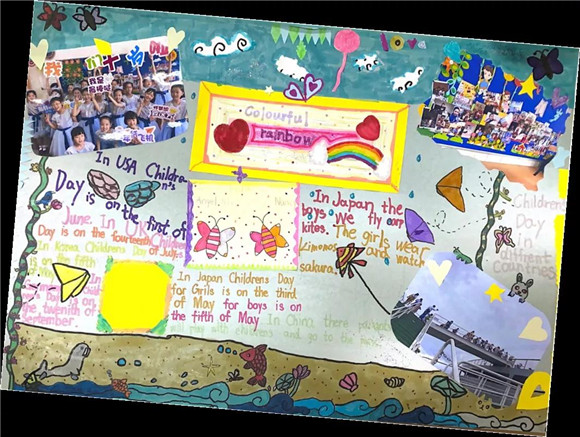 我 十岁
love
Colourful
rainbow
In USA Children's
Day is on the first of
June. In UK Children's
Day is on the fourteenth of July.
In Korea Childrens Day
is on the fifth
of May. In
Day is on
the twenieth of
September.
In Japan the
boys We fly carp
kites. The girls wear
kimonos and watch
sakura.
In Japan Childrens Day
for Grils is on the third
of May for boys is on
the fifth of May In China there parents
will play with children and go to the
Childrens
Day
in
different
countries